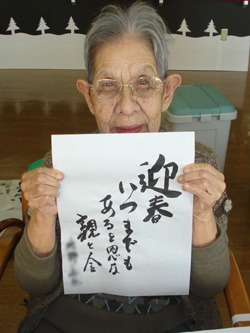 迎春
いつまでも
あると思な
親と金